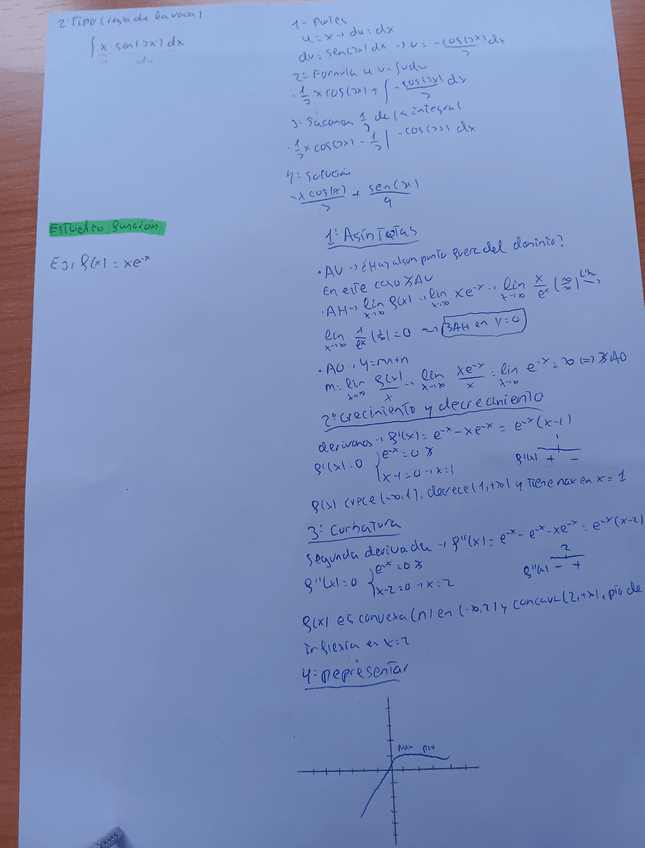 2º Tipo (regla de la vaca)
∫ x · sen(2x) dx
u dv
1º Partes
u = x → du = dx
dv = sen(2x) dx → v = -cos(2x)/2 dx
2º Formula u·v - ∫v du
-1/2 x cos(2x) + ∫ -cos(2x)/2 dx
3º Sacamos 1/2 de la integral
-1/2 x cos(2x) - 1/2 ∫ -cos(2x) dx
4º Solución
-x cos(2x)/2 + sen(2x)/4
Estudio función
Ej: f(x) = xe^-x
1º Asíntotas
· AV → ¿Hay algun punto fuera del dominio?
En este caso ∄ AV
· AH → lim x→∞ f(x) = lim x→∞ xe^-x = lim x→∞ x/e^x (∞/∞) L'H
lim x→∞ 1/e^x (1/∞) = 0 → ∃ AH en y = 0
· AO → y = mx+n
m = lim x→∞ f(x)/x = lim x→∞ xe^-x/x = lim e^-x = ∞ ⇒ ∄ AO
2º Crecimiento y decrecimiento
derivamos → f'(x) = e^-x - xe^-x = e^-x (x-1)
f'(x) = 0 { e^-x = 0 ∄
x-1 = 0 → x = 1
1
f'(x) + -
f(x) crece (-∞,1), decrece (1,+∞) y tiene max en x = 1
3º Curbatura
Segunda derivada → f''(x) = e^-x - e^-x - xe^-x = e^-x (x-2)
f''(x) = 0 { e^-x = 0 ∄
x-2 = 0 → x = 2
2
f''(x) - +
f(x) es convexa (∩) en (-∞,2) y concava (2,+∞), pto de
inflexión en x = 2
4º Representar
Max